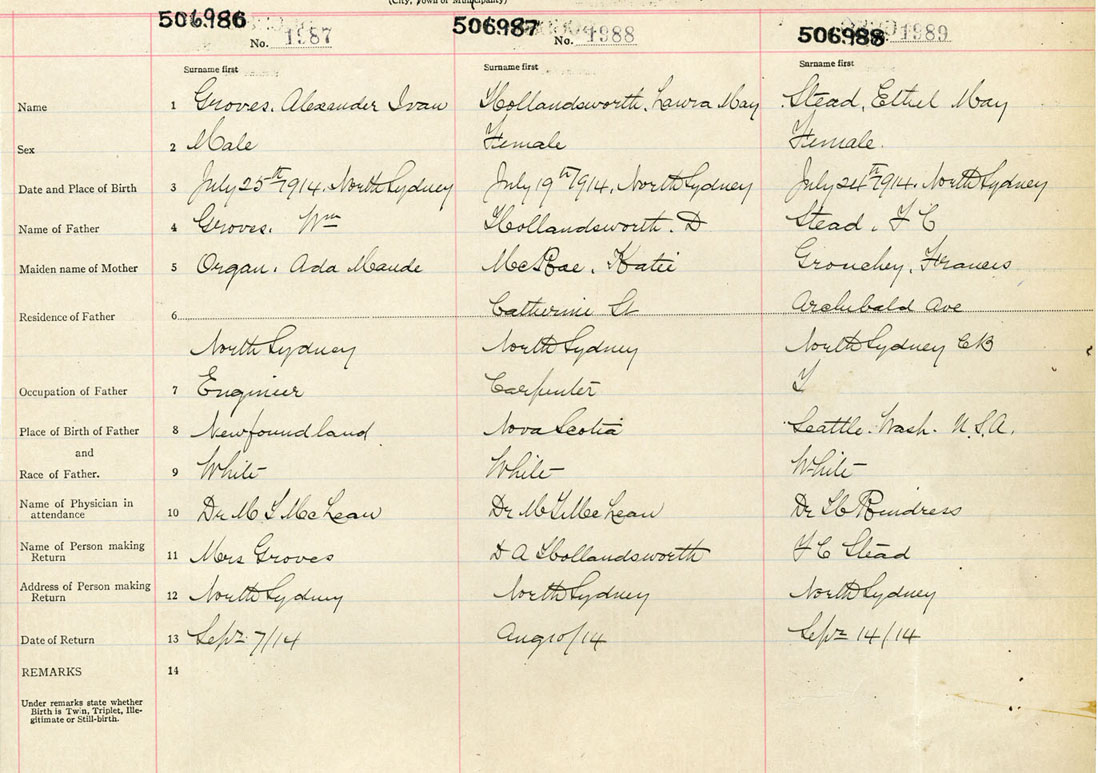 (City, Town of Municipality)
506986 506987 506988
No. 1987 No. 1988 1989
Surname first Surname first Surname first
Name 1 Groves, Alexander Ivan Hollandsworth, Laura May Stead, Ethel May
Sex 2 Male Female Female.
Date and Place of Birth 3 July 25th 1914. North Sydney July 19th 1914, North Sydney July 24th 1914. North Sydney
Name of Father 4 Groves. Wm Hollandsworth. D Stead, F C
Maiden name of Mother 5 Organ. Ada Maude McRae, Katie Grouchey, Francis
Residence of Father 6 Catherine St Archibald Ave
North Sydney North Sydney North Sydney CB
Occupation of Father 7 Engineer Carpenter
Place of Birth of Father 8 Newfoundland Nova Scotia Seattle. Wash. U.S.A.
and
Race of Father. 9 White White White
Name of Physician in
attendance 10 Dr M S McLean Dr McLean Dr
Name of Person making
Return 11 Mrs Groves D A Hollandsworth F C Stead
Address of Person making
Return 12 North Sydney North Sydney North Sydney
Date of Return 13 Sept 7/14 Aug 10/14 Sept 14/14
REMARKS 14
Under remarks state whether
Birth is Twin, Triplet, Ille-
gitimate or Still-birth.